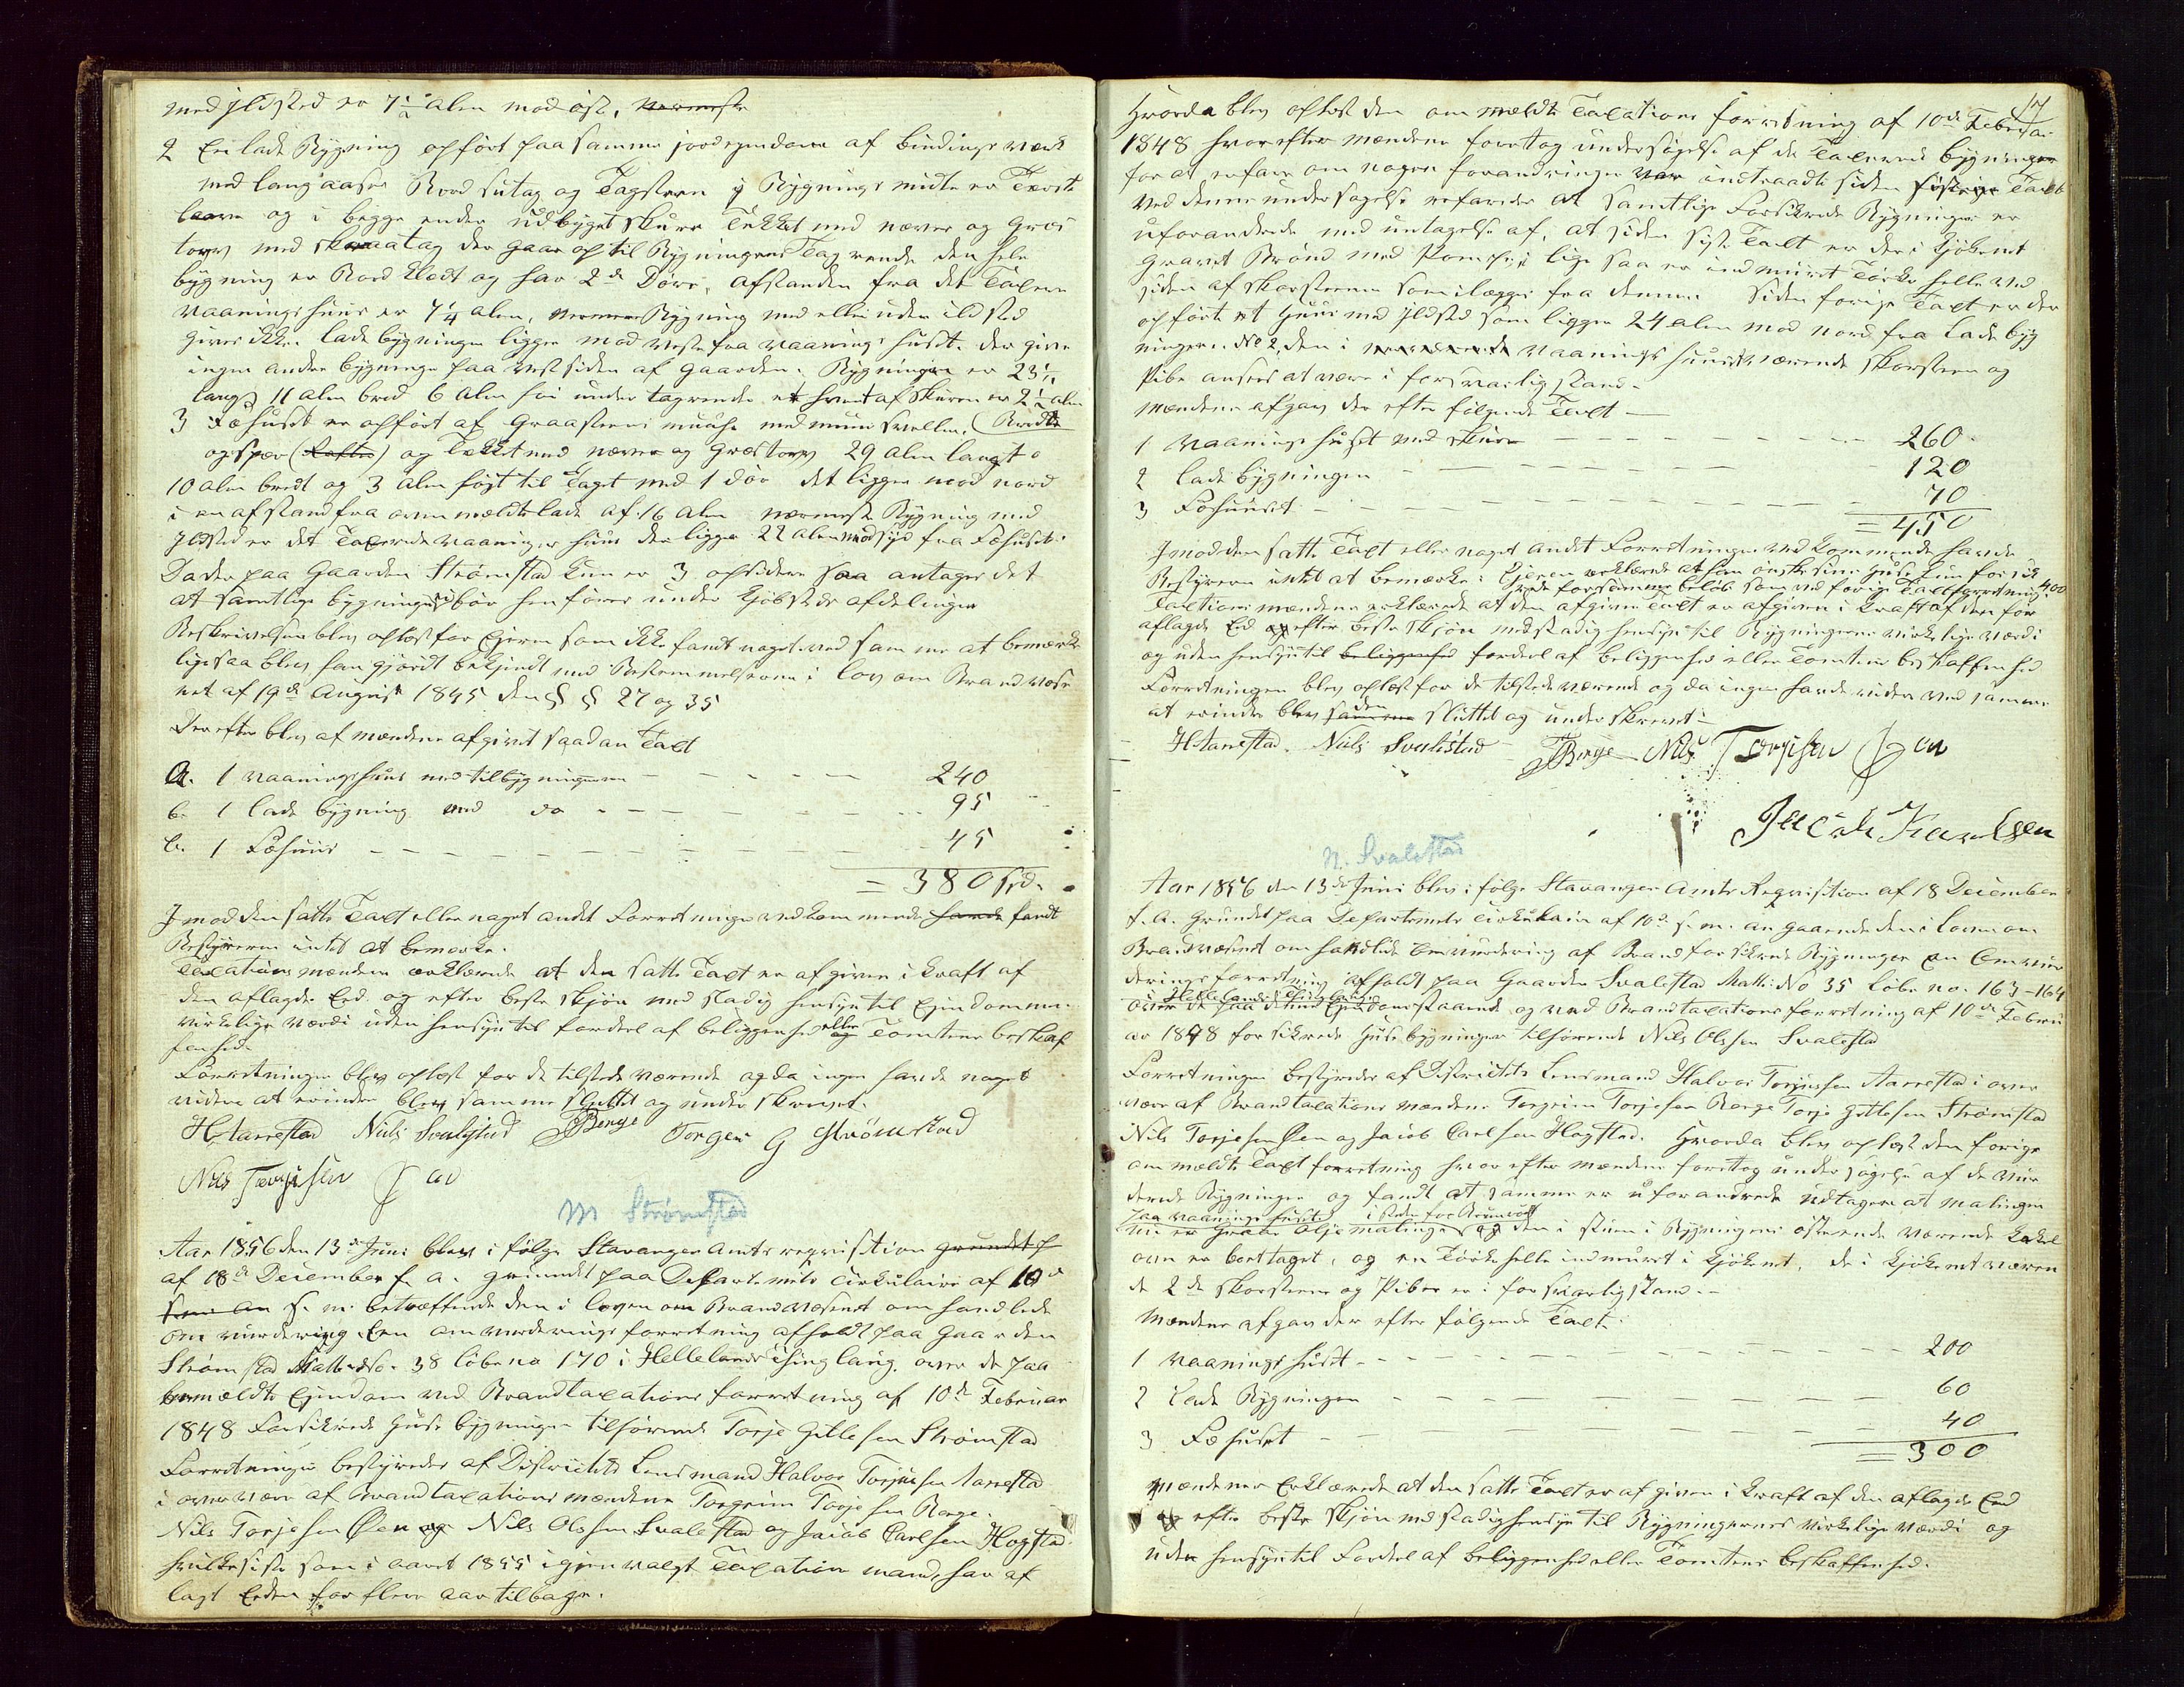 med Ildsted er 7 1/2 Alen mod øst, nærmeste
2 En lade Bygning opført paa samme jordegendom af Bindingsværk
med langaaser Bord sutag og Tagsteen i Bygnings midte er Træske
laave og i begge ender udbyget skure Tekket med næver og Græs
torv med skraatag der gaar op til Bygningens Tagrende den hele
bygning er Bord Klædt og har 2de Døre, afstanden fra det Taxerede
vaaningshuus er 7 1/4 alen, nærmere Bygning med eller uden ildsted
gives ikke. ladebygningen ligger mod vest fra vaanings huset. der gives
ingen andre bygninger paa vestsiden af gaarden. Bygningen er 23 1/2
lang 11 alen bred 6 alen høi under tagrende et hvert af skurene er 2 1/2 alen
3 Fæhuset er opført af Graasteens muure med muursveller, Bredte
og spær (Rafter) og Tekket med næver og Græstorv 29 alen langt
10 alen bredt og 3 alen høit til Taget med 1 dør det ligger mod nord
i en afstand fra ovenmældte lade af 16 alen nærmeste Bygning med
Ildsted er det Taxerede vaanings huus der ligger 22 alen mod syd fra Fæhuset.
Da der paa Gaarden Strømstad kun er 3 opsidere saa antages det
at samtlige bygninger bør henføres under Kjøbsteds afdelingen
Beskrivelsen blev oplæst for Ejeren som ikke fandt noget ved samme at bemærke
ligesaa blev han gjordt bekjendt med Bestemmelserne i lov om Brandvæse
net af 19de August 1845 den § § 27 og 35
Derefter blev af mændene afgivet saadan Taxt
a. 1 vaaningshuus med tilbygningerne 240
b. 1 lade bygning med do 95
c. 1 Fæhuus 45
= 380 spd.
Imod den satte Taxt eller noget andet Forretningen vedkommende havde fandt
Bestyreren intet at bemærke.
Taxations mændene erklærede at den satte Taxt er afgiven i kraft af
den aflagde Eed og efter beste skjøn med stadig hensyn til Ejendommens
virkelige værdi uden hensyn til fordeel af beliggenhed eller Tomtens beskaf
fenhed.
Forretningen blev oplæst for de tilstedeværende og da ingen havde noget
videre at erindre blev samme sluttet og underskrevet.
H Aarrestad Nils Svalestad TBerge Torger G Strømstad
Nils Torjesen Øen
M Strømstad
Aar 1856 den 13de Juni blev i følge Stavanger Amts reqvisition grundet p
af 18de December f. a. grundet paa Departemets Cirkulaire af 10de
s. m. betræffende den i loven om Brandvæsenet omhandlede
om vurdering Een omvurderings forretning afholdt paa Gaarden
Strømstad Matr No. 38 løbe no 170 i Hellelands Thinglaug over de paa
bemældte Ejendom ved Brandtaxations forretning af 10de Februar
1848 Forsikrede Huse bygninger tilhørende Torje Gitlesen Strømstad
Forretningen bestyredes af Districtets Lensmand Halvor Torjussen Aarrestad
i overvær af Brandtaxations mændene Torgrim Torjesen Berge.
Nils Torjesen Øen og Nils Olsen Svalestad og Jacob Carlsen Hogstad
hvilke siste som i aaret 1855 igjen valgt Taxations mand, har af
lagt Eeden for flere aar tilbage.
17
Hvorda blev oplæst den ommældte Taxations forretning af 10de Februar
1848 hvorefter mændene foretog undersøgelse af de Taxerede bygninger
for at erfare om nogen forandringer var indtraadt siden forrige Taxt
ved denne undersøgelse erfaredes at samtlige Forsikrede Bygninger er
uforandrede med untagelse af, at siden siste Taxt er der i Kjøkenet
gravet Brønd med Pompe i lige saa er indmuret Tørke helle ved
siden af skorstenen som ilægges fra denne. Siden forrige Taxt er der
opført et Huus med Ildsted som ligger 24 alen mod nord fra lade byg
ningen No 2, den i vaaningshuuset værende skorsteen og
Pibe ansees at være i forsvarlig stand.
mændene afgav der efter følgende Taxt
1 vaanings huset med skure 260
2 lade bygningen 120
3 Fæhuuset 70
= 450
Imod den satte Taxt eller noget andet Forretningen vedkommende havde
Bestyreren intet at bemærke. Ejeren erklærede at han ønskte sine Huse kun forsik
rede for samme beløb som ved forrige Taxtforretning 400
Taxtions mændene erklærede at den afgivne Taxt er afgiven i kraft af den før
aflagde Eed og efter beste skjøn med stadig hensyn til Bygningernes virkelige værdi
og uden hensyn til beliggenhed fordeel af beliggenhed eller Tomtens beskaffenhed
Forretningen blev oplæst for de tilstedeværende og da ingen havde videre ved samme
at erindre blev den samme sluttet og underskrevet.
H Aarrestad. Nils Svalestad TBerge Nils Torjesen Øen
Jacob Karlsen
N. Svalestad
Aar 1856 den 13de Juni blev i følge Stavanger Amts Reqvisition af 18 December
f. a. grundet paa Departemets Cirkulair af 10de s. m. angaaende den i Loven om
Brandvæsenet omhandlede omvurdering af Brandforsikrede Bygninger en Omvur
derings forretning afholdt paa Gaarden Svalestad Matr: No 35 Løbe no. 163-164
Hellelands Thinglaug
over de paa denne Ejendom staaende og ved Brandtaxations forretning af 10de Febru
ar 1848 forsikrede Husebygninger tilhørende Nils Olsen Svalestad
Forretningen bestyredes af Districtets Lensmand Halvor Torjussen Aarrestad i over
vær af Brandtaxations mændene Torgrim Torjesen Berge Torje Gitlesen Strømstad
Nils Torjesen Øen og Jacob Carlsen Hogstad. Hvorda blev oplæst den forige
om mældte Taxt forretning hvor efter mændene foretog undersøgelse af de vur
derede Bygninger og fandt at samme er uforandrede udtagen at malingen
paa vaanings huset i steden for Brunrødt
nu er graae Olje malinge og den i stuen i Bygningens østre ende værende Kakel
ovn er borttaget, og en Tørkehelle indmuret i Kjøkenet, de i Kjøkenet væren
de 2de skorstene og Piber er i forsvarlig stand.
Mændene afgav der efter følgende Taxt.
1 vaanings huset 200
2 Lade Bygningen 60
3 Fæhuset 40
= 300
Mændene Erklærede at den satte Taxt er afgiven i kraft af den aflagde Eed
og efter beste skjøn med stadig hensyn til Bygningernes virkelige værdi og
uden hensyn til Fordeel af beliggenhed eller Tomtens beskaffenhed.